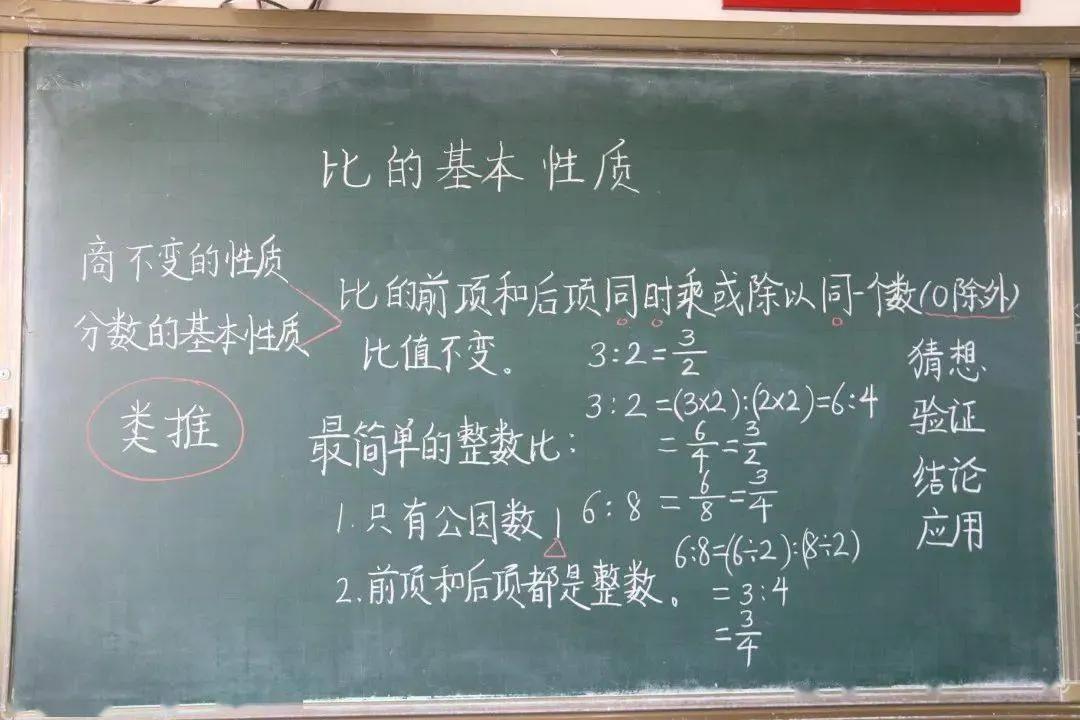 比的基本性质
商不变的性质
分数的基本性质
类推
比的前项和后项同时乘或除以同一个数(0除外)
比值不变。
3:2=3/2
3:2=(3×2):(2×2)=6:4
=6/4=3/2
最简单的整数比:
1.只有公因数1
2.前项和后项都是整数。
6:8=6/8=3/4
6:8=(6÷2):(8÷2)
=3:4
=3/4
猜想
验证
结论
应用